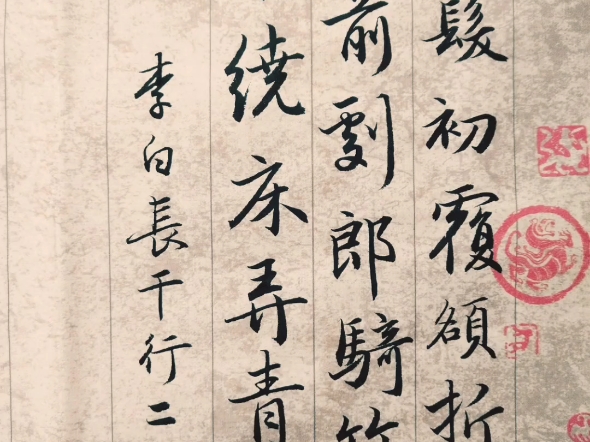 髮初覆額折
前劇郎騎竹
繞床弄青
李白長干行二